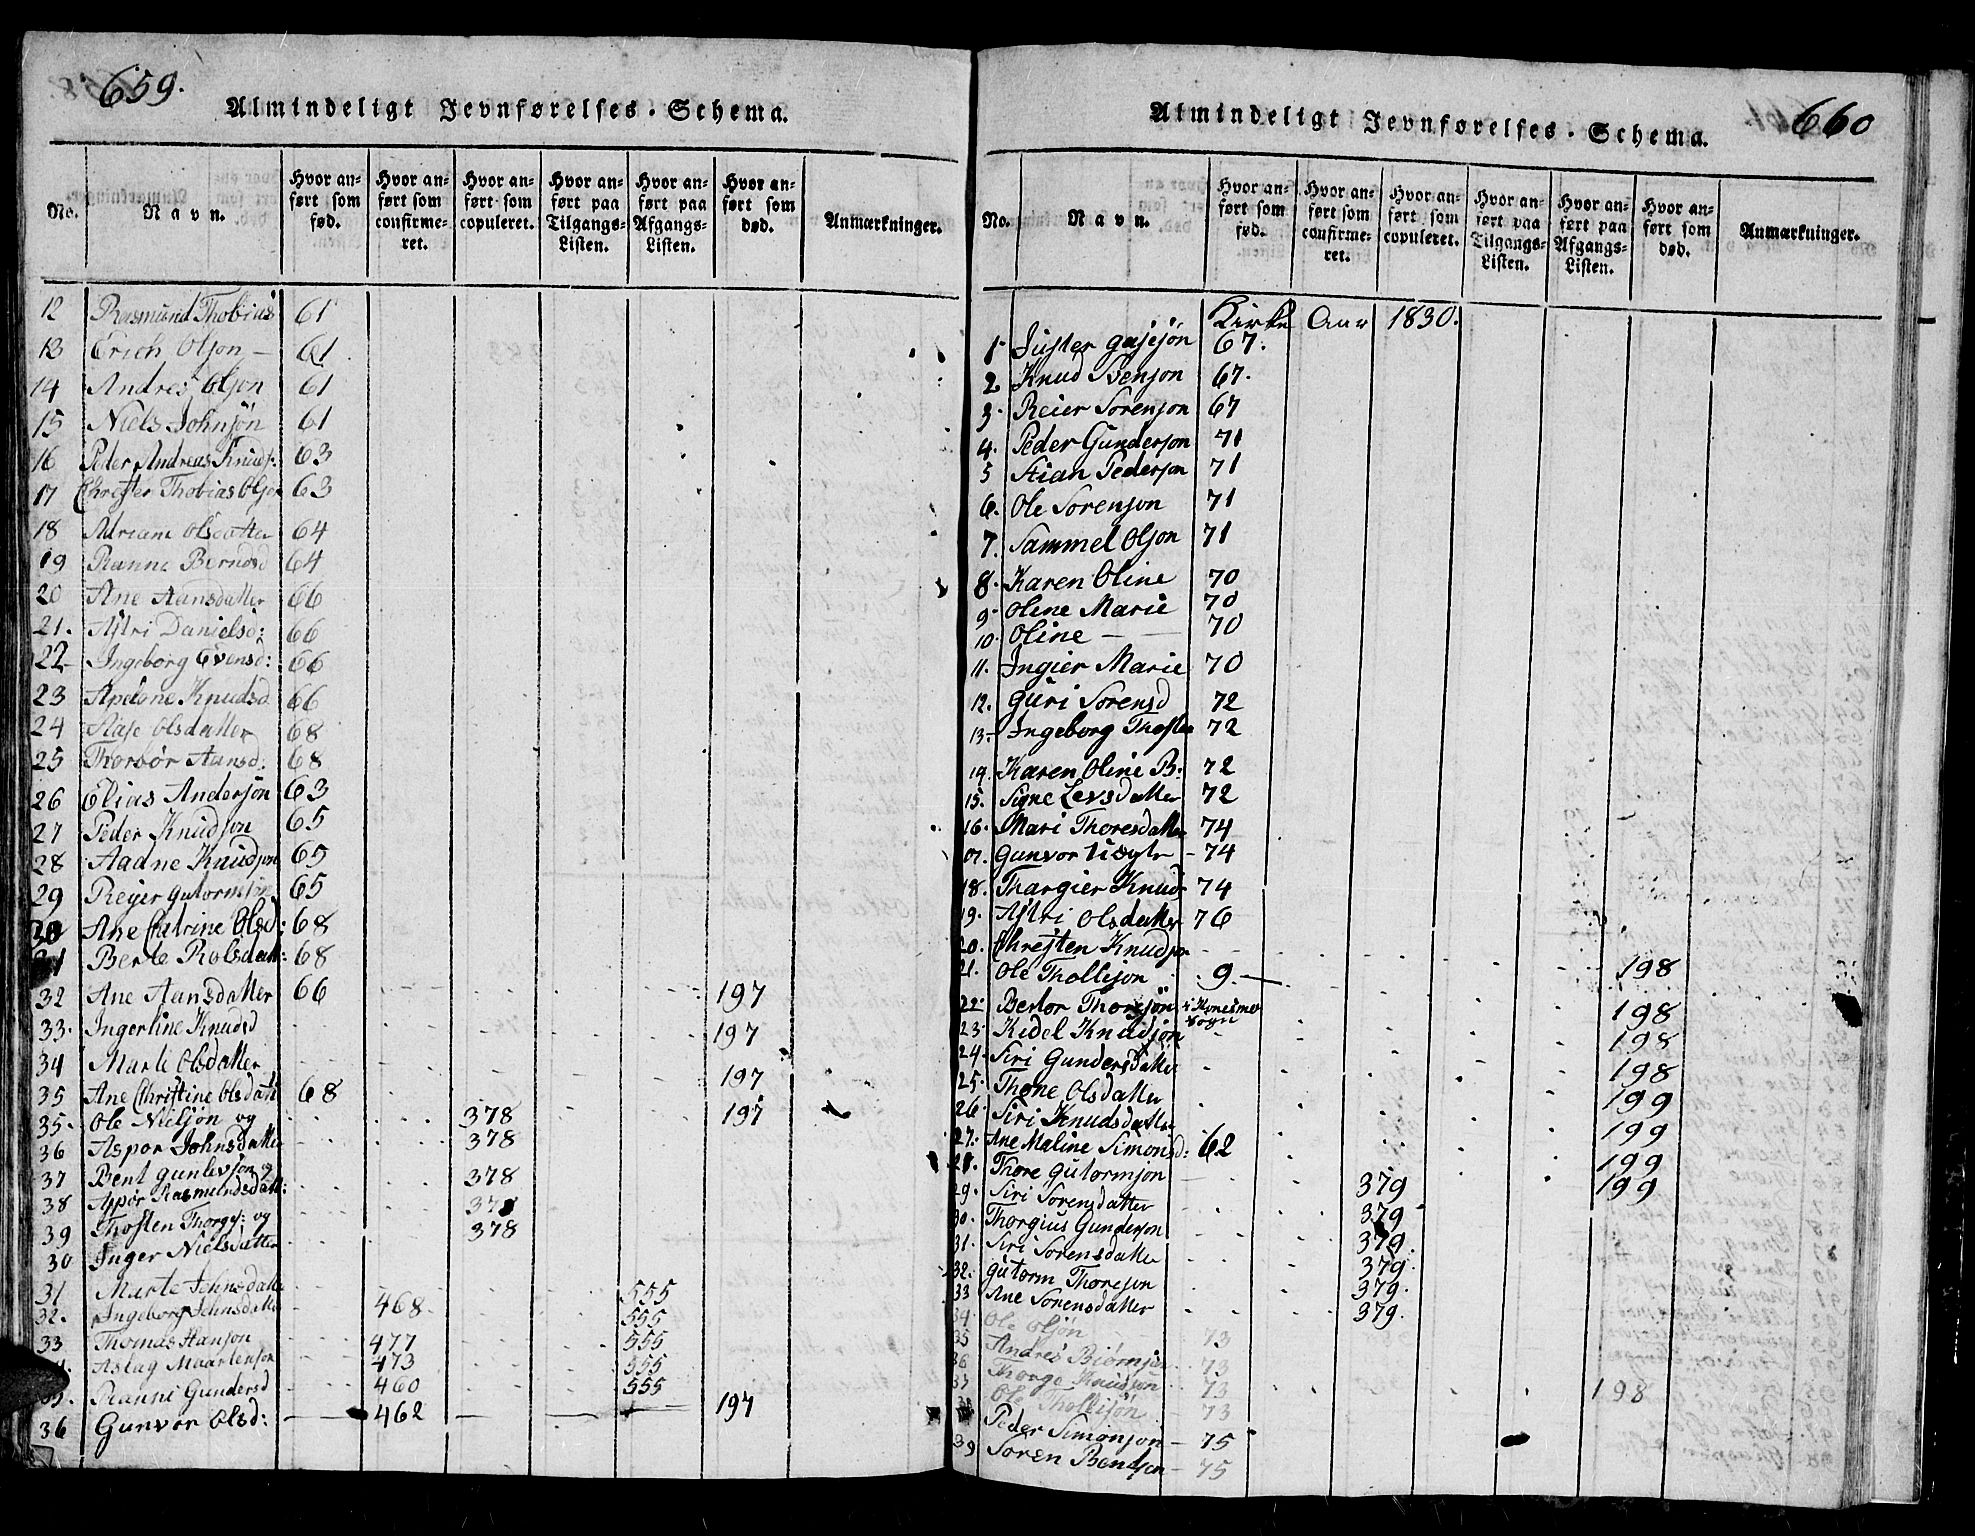 659.
Almindeligt Jevnførelses-Schema.
No. Navn. Hvor anført som fød. Hvor anført som confirmeret. Hvor anført som copuleret. Hvor anført paa Tilgangs-Listen. Hvor anført paa Afgangs-Listen. Hvor anført som død. Anmærkninger.
12 Rasmund Thobias 61
13 Erich Olson - 61
14 Andres Olson 61
15 Niels Johnsøn 61
16 Peder Andreas Knuds: 63
17 Christen Thobias Olson 63
18 Adriane Olsdatter 64
19 Ranne Berndsd 64
20 Ane Aansdatter 66
21. Astri Danielsd: 66
22 Ingeborg Evensd: 66
23 Anetone Knudsd 66
24 Aase Olsdatter 68
25 Thorbør Aansd: 68
26 Elias Andersøn 63
27 Peder Knudson 65
28 Aadne Knudson 65
29 Reyer Gutormsøn 65
30 Ane Catrine Olsd: 68
31 Berte Rolsdatt: 68
32 Ane Aansdatter 66 197
33. Ingerline Knudsd 197
34 Marte Olsdatter 197
35 Ane Christine Olsdatt 68 197
35. Ole Nielsøn og 378
36 Aspor Johnsdatter 378
37 Bent Gunlevson og 378
38 Aspør Rasmundsdatt: 378
39 Thosten Thorgs: og 378
30 Inger Nielsdatter
31 Marte Johnsdatter 555
32. Ingeborg Johnsdatter 468 555
33 Thomas Hanson 477 555
Aslag Maartenson 473 555
Ranni Gundersd 460 555
36 Gunvor Olsd: 462 197
660
Almindeligt Jevnførelses-Schema.
No. Navn. Hvor anført som fød. Hvor anført som confirmeret. Hvor anført som copuleret. Hvor anført paa Tilgangs-Listen. Hvor anført paa Afgangs-Listen. Hvor anført som død. Anmærkninger.
Kirke Aar 1830.
1 67.
2 Knud Svenson 67.
3. Reier Sorenson 67
4. Peder Gunderson 71
5 Stian Pederson 71
6. Ole Sorenson 71
7. Sammel Olson 71
8. Karen Oline 70
9. Olene Marie 70
10. Oline - 70
11. Ingier Marie 70
12. Guri Sorensd 72
13. Ingeborg Thoste 72
14. Karen Oline B: 72
15. Signe Levsdatter 72
16. Mari Thoresdatter 74
Gunvor - 74
18. Thargier Knud: 74
19. Astri Olsdatter 76
20. Chresten Knudson
21. Ole Thollison 9. 198
22. Bertor Thorsøn 198
23. Kidel Knudsøn 198
24. Siri Gundersdatter 198
25. Thone Olsdatter 199
26. Siri Knudsdatter 199
27. Ane Maline Simonsd: 62 199
28. Thore Gutormson 379 199
29. Siri Sorensdatter 379
30. Thorgius Gunderson 379.
31. Siri Sorensdatter 379.
32. Gutorm Thoreson 379.
33 Ane Sorensdatter 379.
34 Ole Olsøn 73
35 Andres Biørns 73
36 Thorge Knudson 73
37 Ole Thollisøn 73 198
38 Peder Simonson - 75
39 Soren Bentson - 75